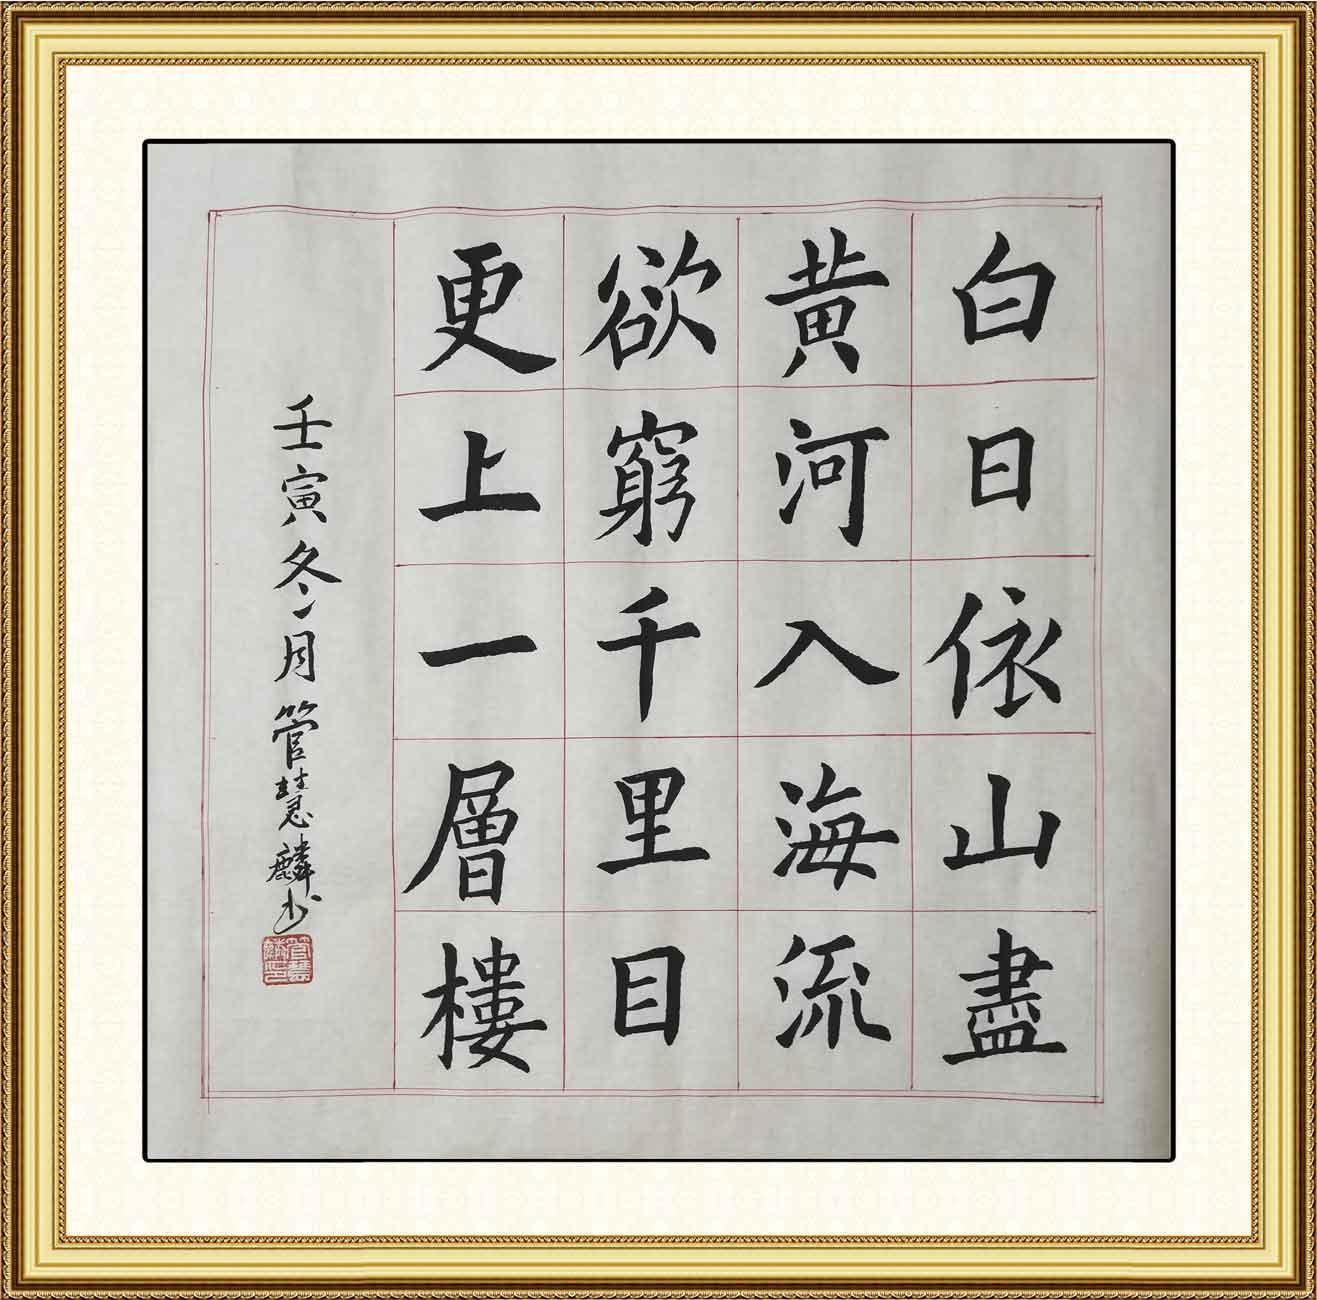 白日依山盡
黃河入海流
欲窮千里目
更上一層樓
壬寅冬月管慧麟书
管慧麟印